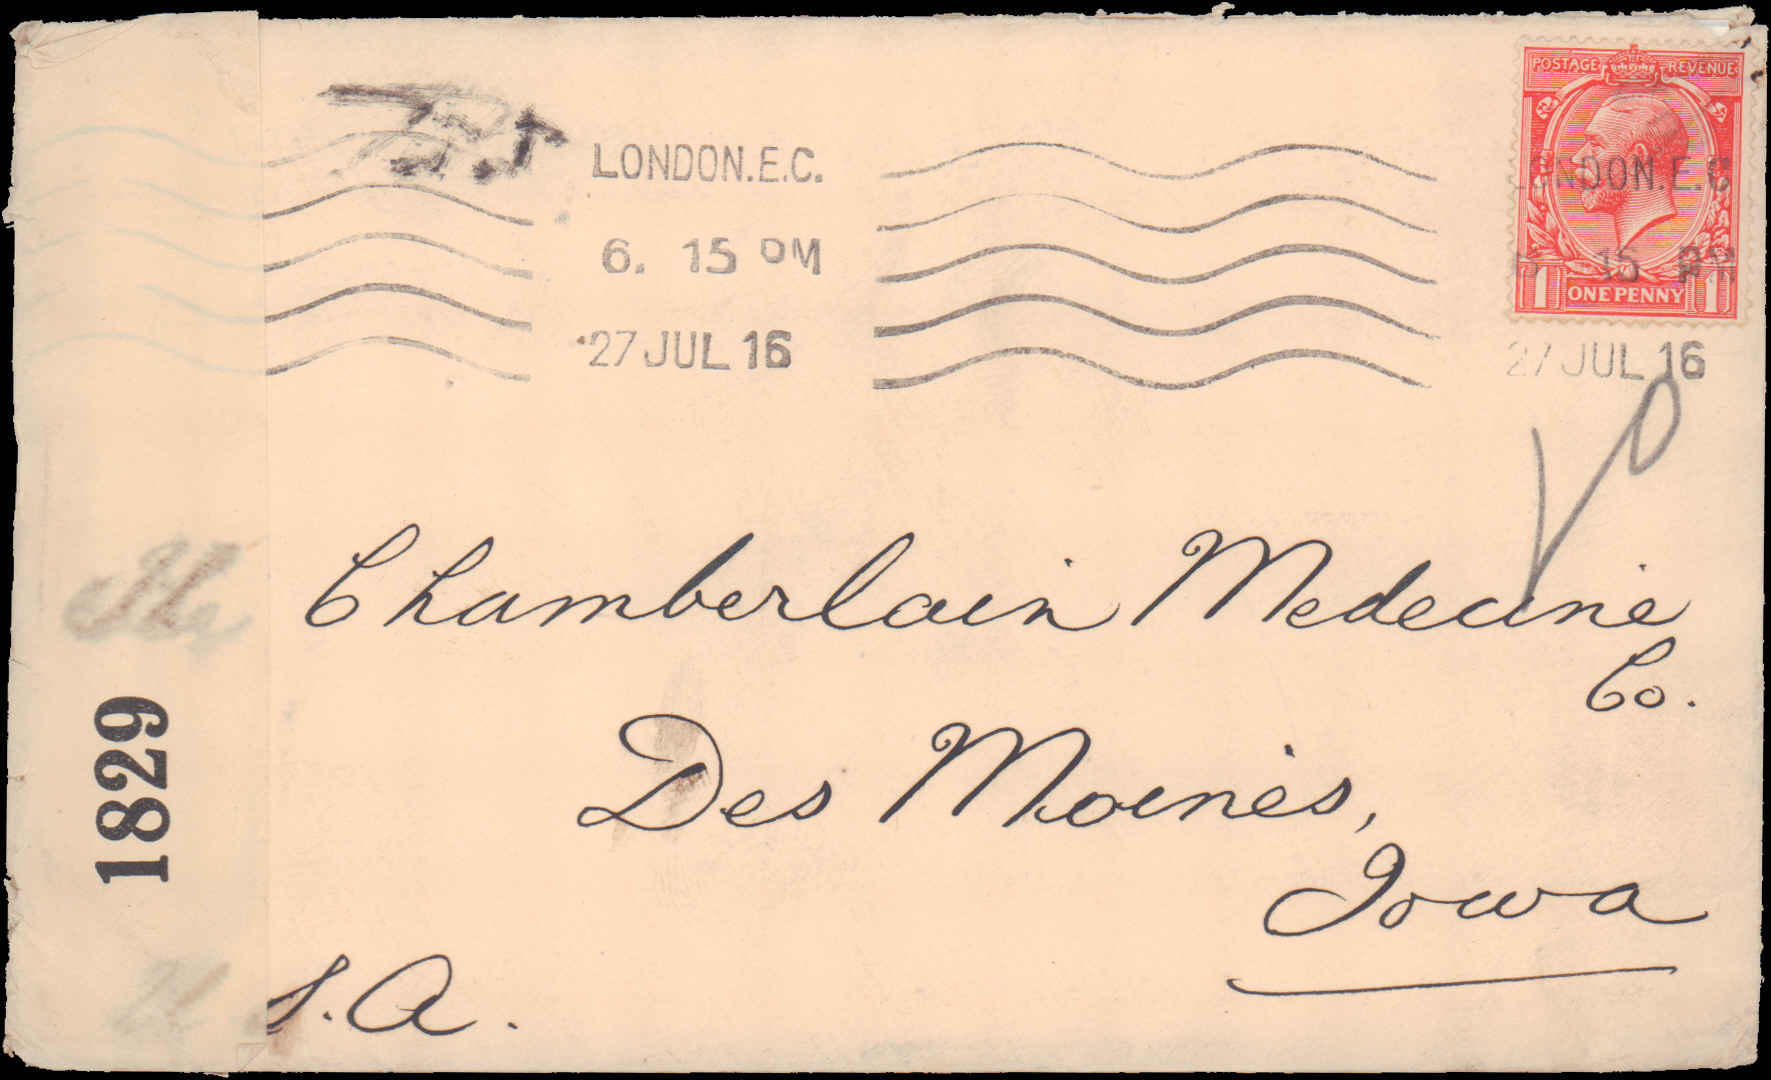 POSTAGE REVENUE
LONDON.E.C.
6. 15 PM
27 JUL 16
LONDON.E.C
15 PM
1 ONE PENNY 1
27 JUL 16
The
Chamberlain Medecine
Co.
Des Moines,
Iowa
U.S.A.
1829